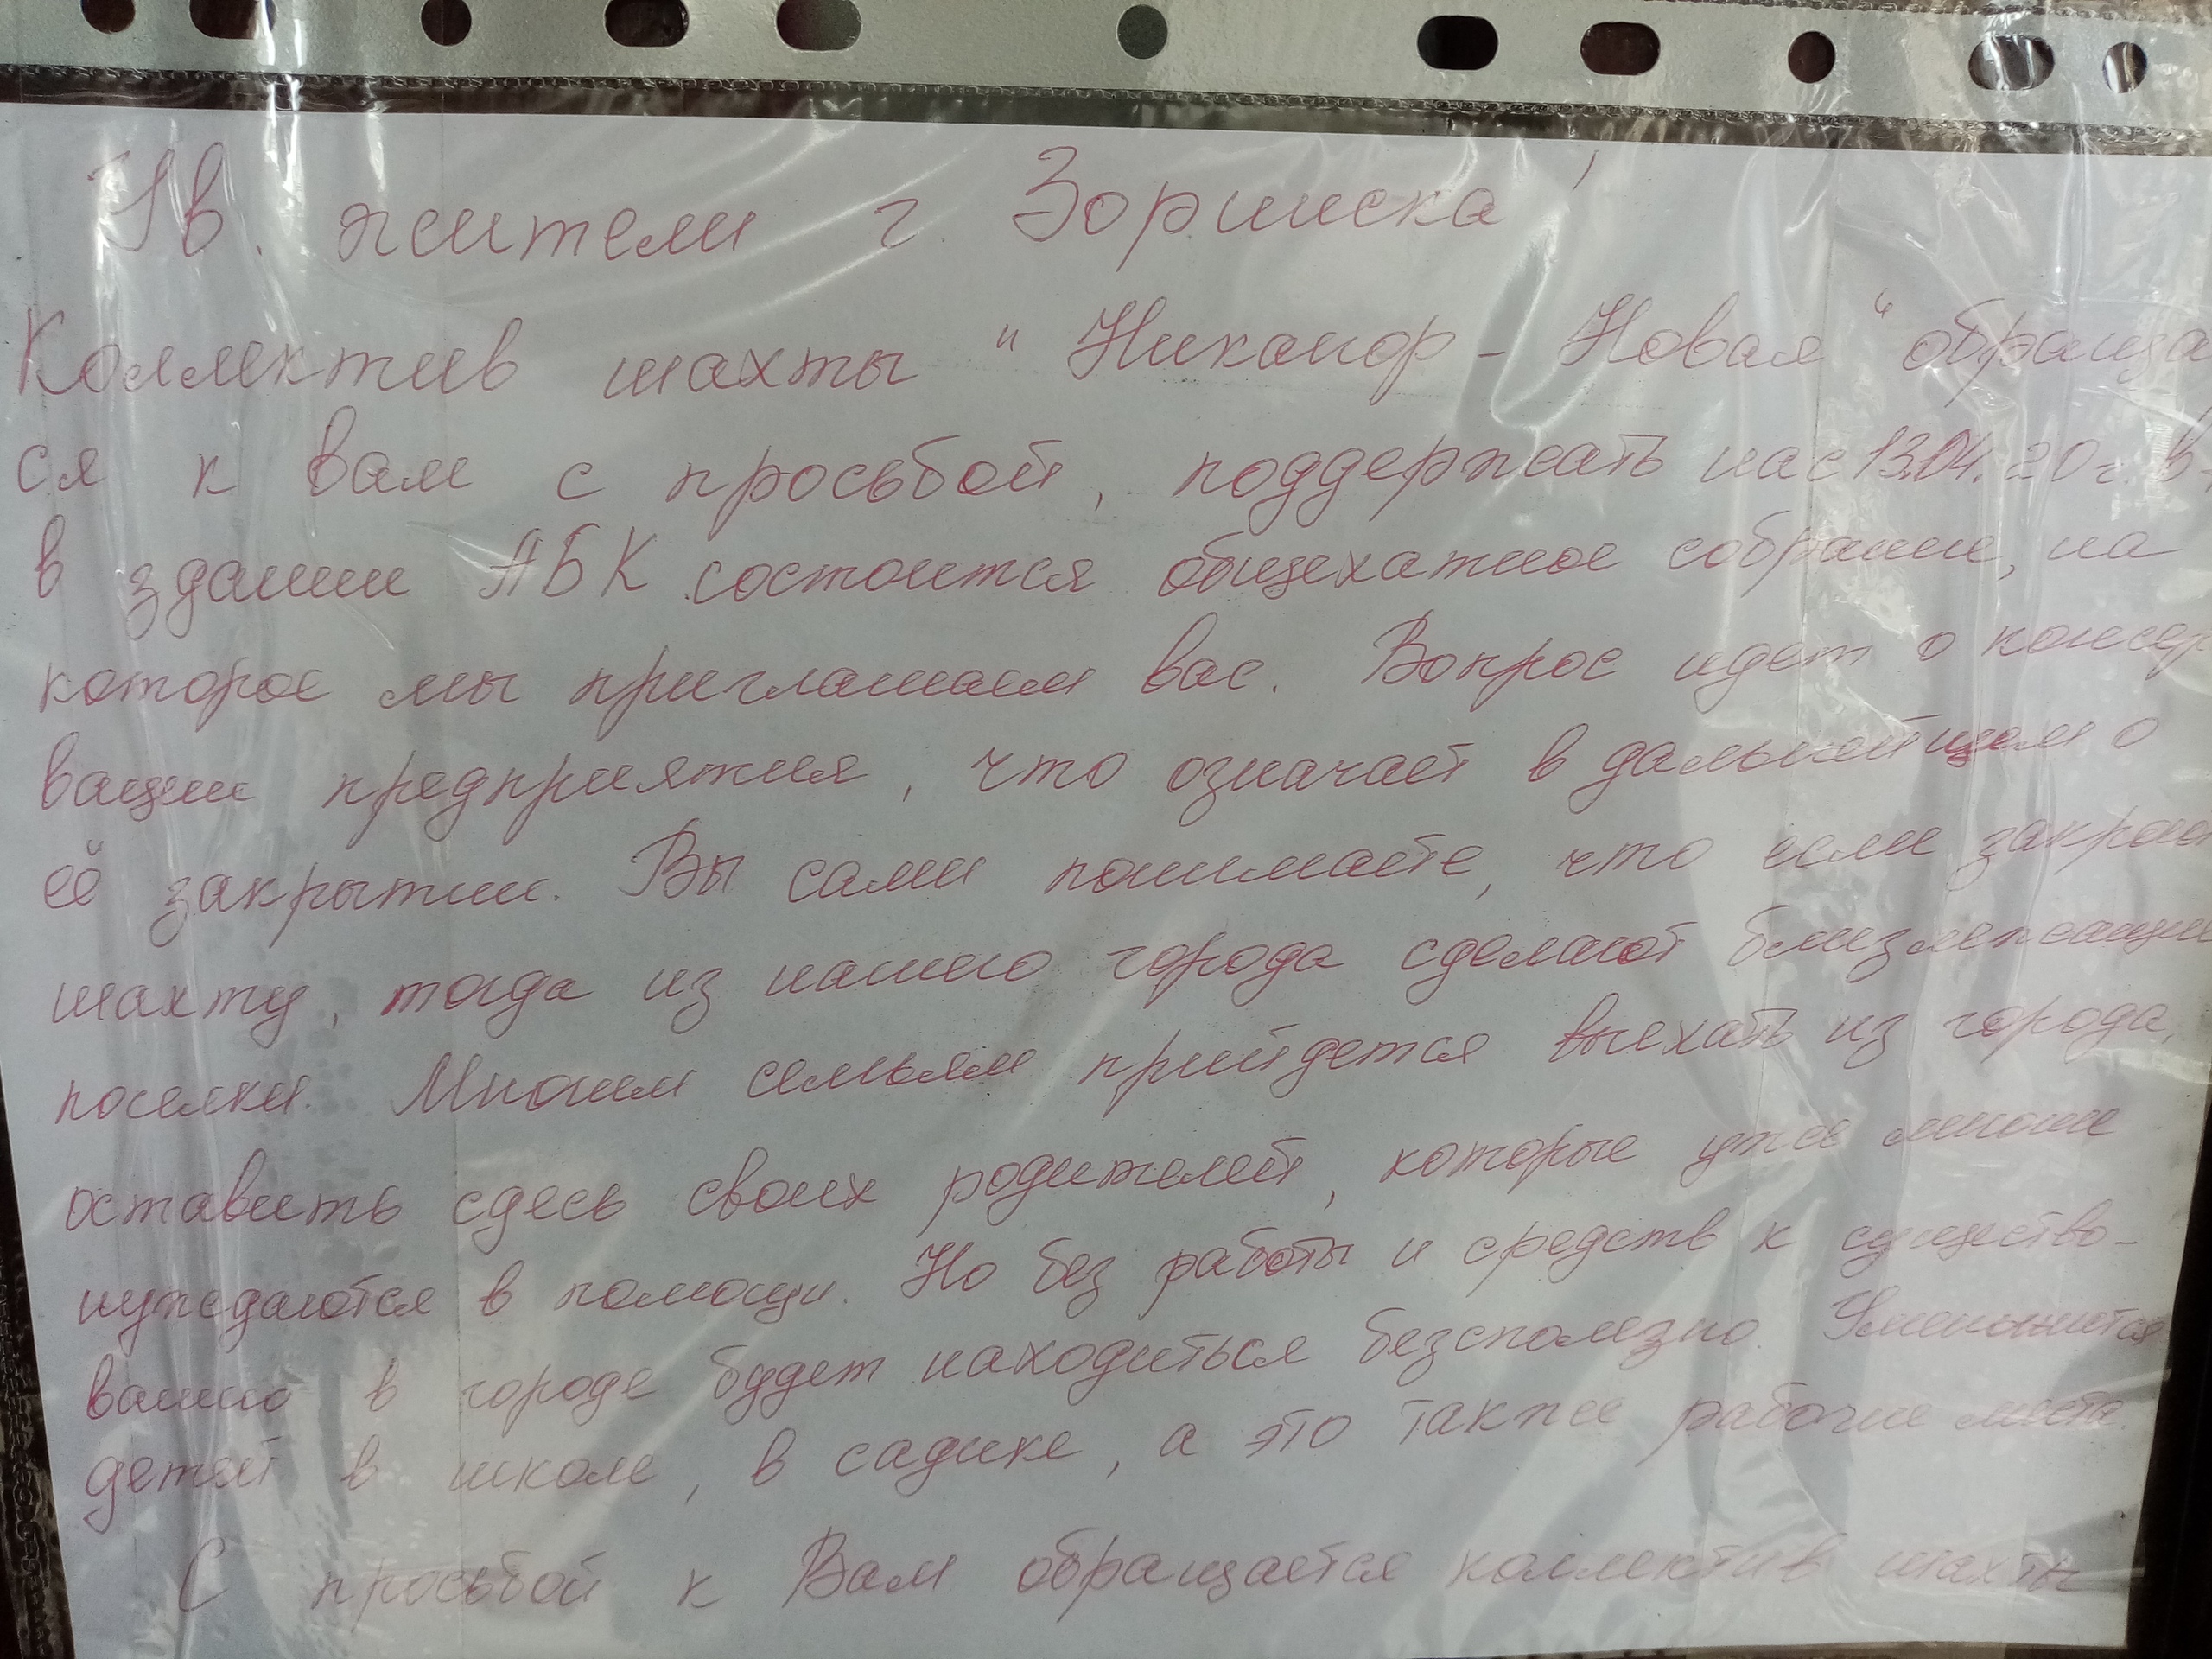 Ув. жители г. Зоринска!
Коллектив шахты "Никанор - Новая" обраща
ся к вам с просьбой, поддержать нас 13.04.20 г. в
в здании АБК состоится общехатное собрание, на
которое мы приглашаем вас. Вопрос идет о консер
вации предприятия, что означает в дальнейщем о
её закрытии. Вы сами понимаете, что если закроют
шахту, тогда из нашего города сделают близлежащие
поселки. Многим семьям прийдется выехать из города,
оставить сдесь своих родителей, которые уже многие
нуждаются в помощи. Но без работы и средств к существо-
ванию в городе будет находиться безсполезно. Уменьшится
детей в школе, в садике, а это также рабочие места.
С просьбой к Вам обращается коллектив шахты